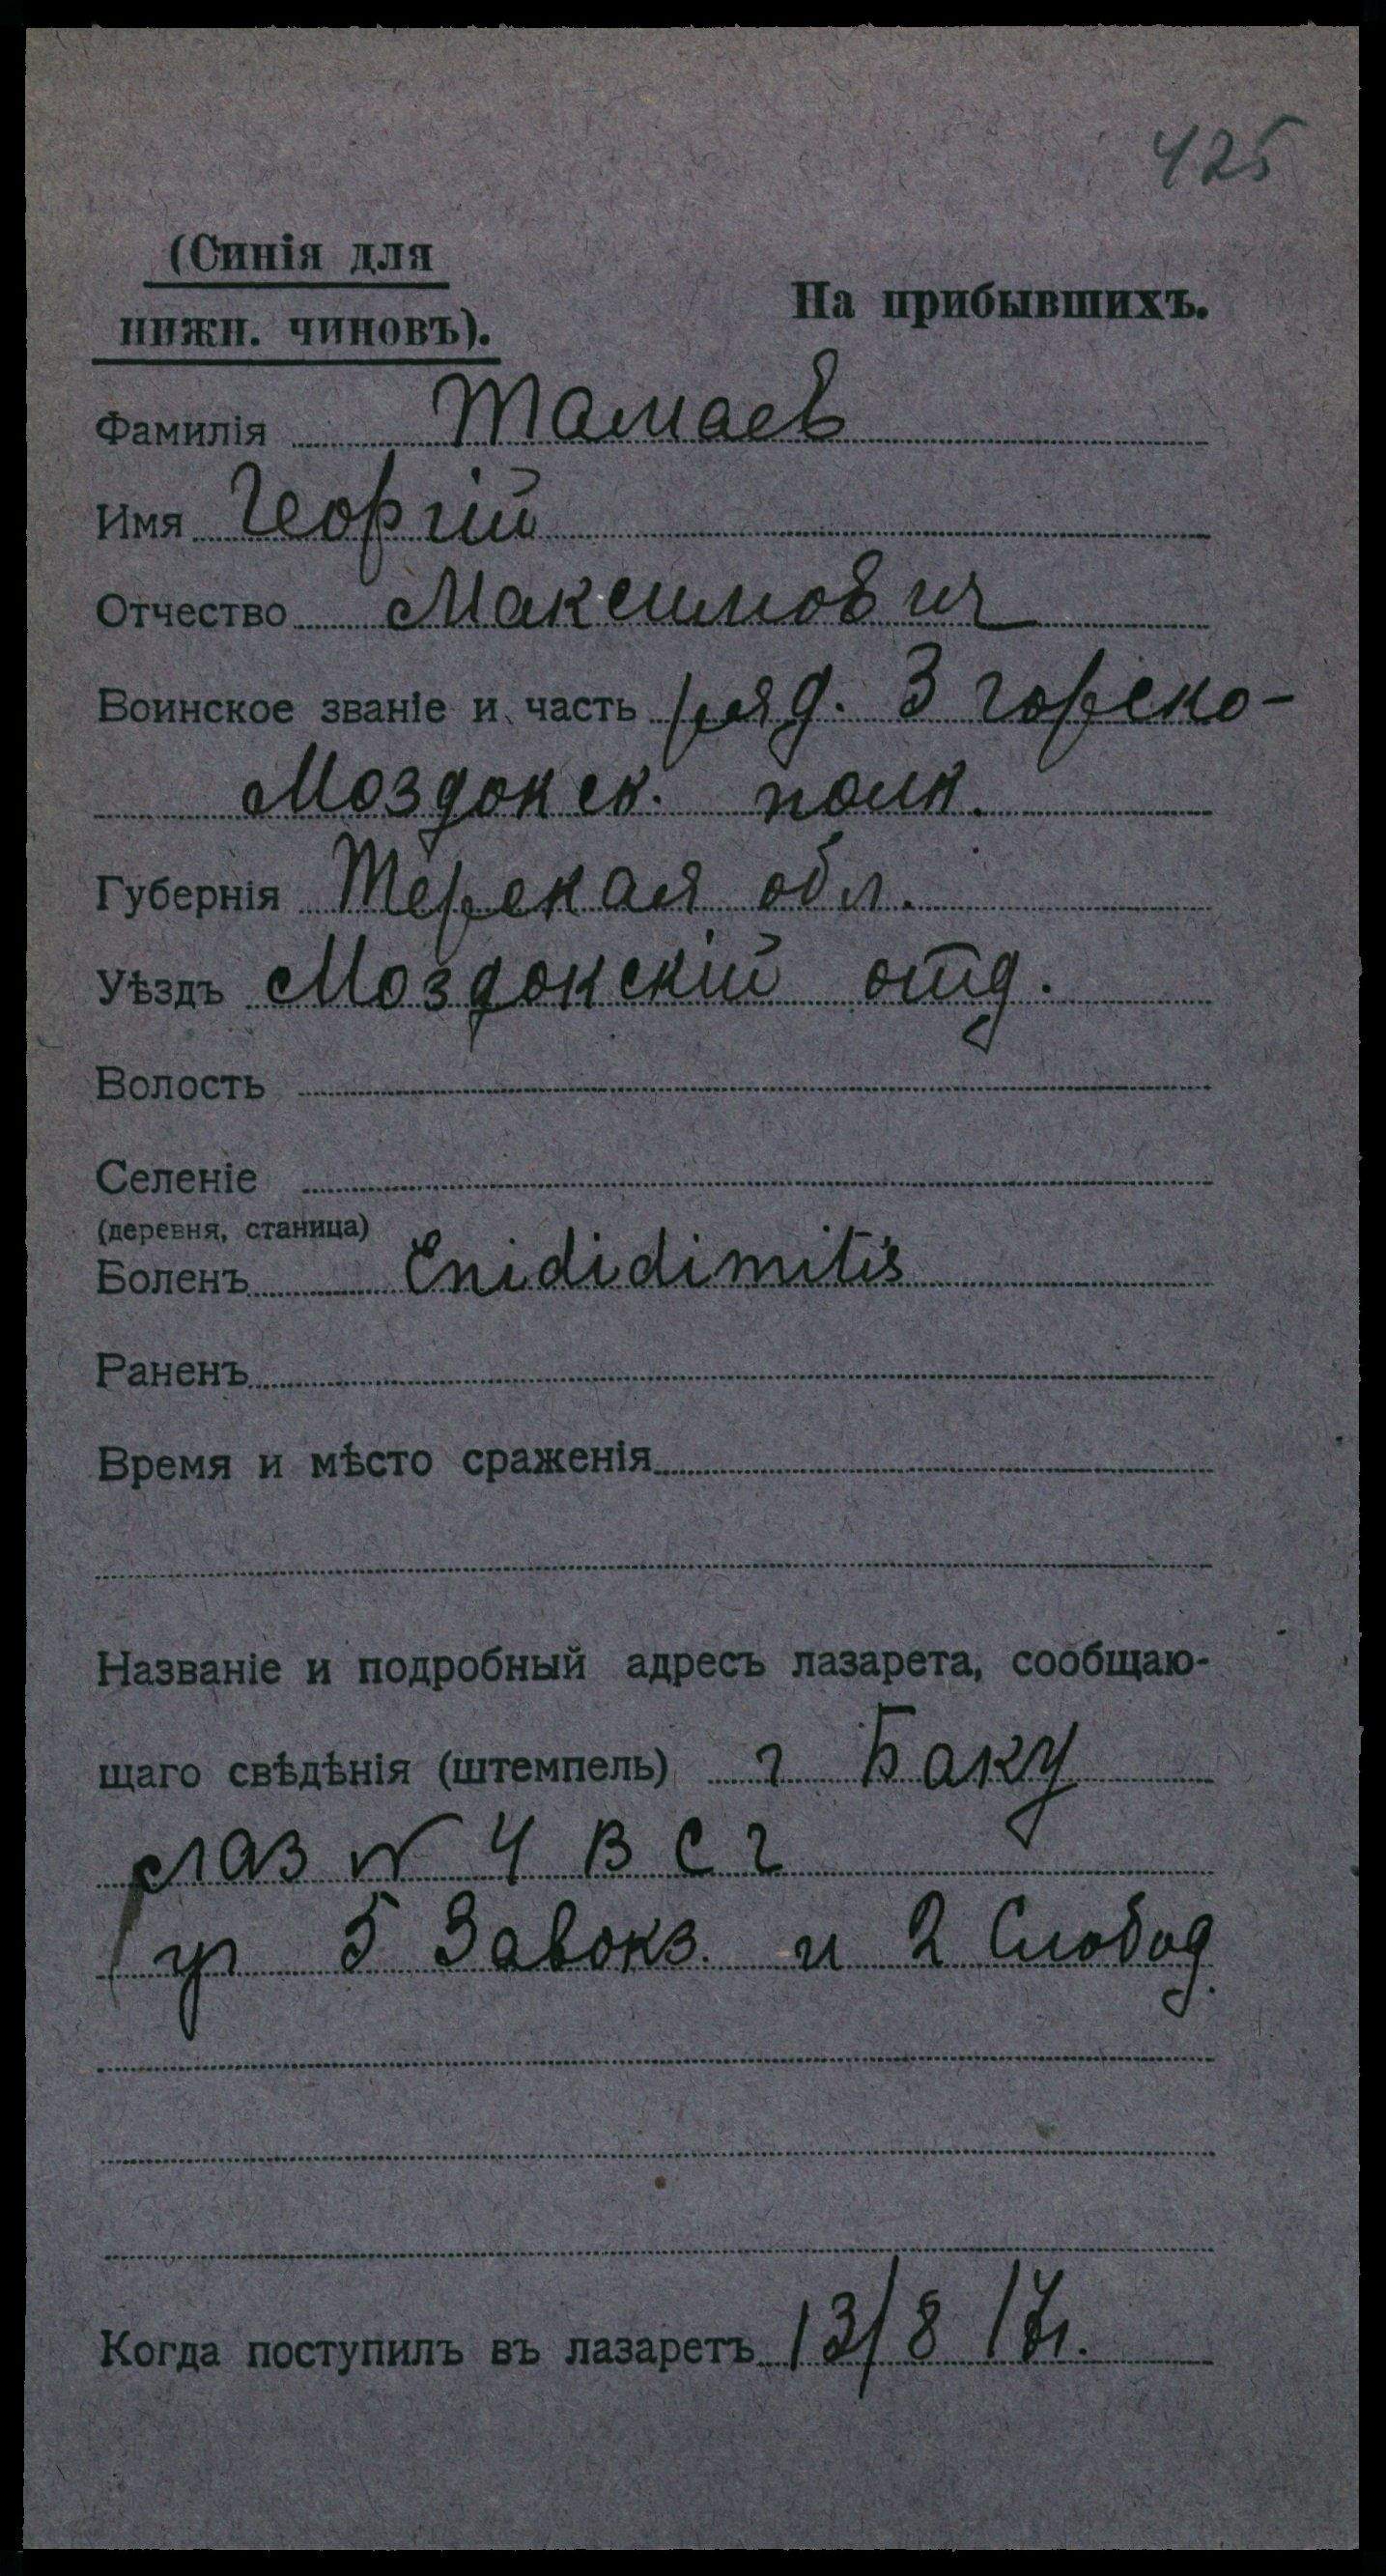 425
(Синія для
нижн. чиновъ).
На прибывшихъ.
Фамилія Тамаев
Имя Георгій
Отчество Максимович
Воинское званіе и часть ряд. 3 горско-
Моздокск. полк.
Губернія Терская обл.
Уѣздъ Моздокскій отд.
Волость
Селеніе
(деревня, станица)
Боленъ Enididimitis
Раненъ
Время и мѣсто сраженія
Названіе и подробный адресъ лазарета, сообщаю-
щаго свѣдѣнія (штемпель) г Баку
лаз № 4 В С г
уг 5 Завокз. и 2 Слобод.
Когда поступилъ въ лазаретъ 13/8 17г.